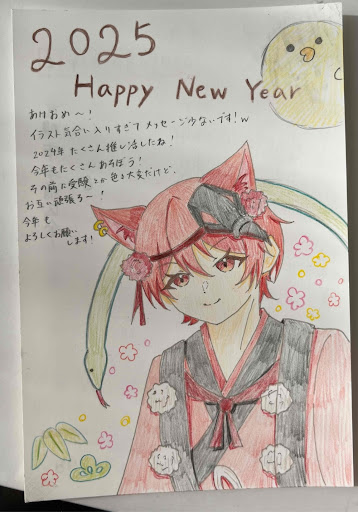 2025
Happy New Year
あけおめ〜!
イラスト気合い入りすぎてメッセージ少ないです!w
2024年たくさん推し活したね!
今年もたくさんあそぼう!
その前に受験とか色々大変だけど、
お互い頑張ろ〜!
今年も
よろしくお願い
します!